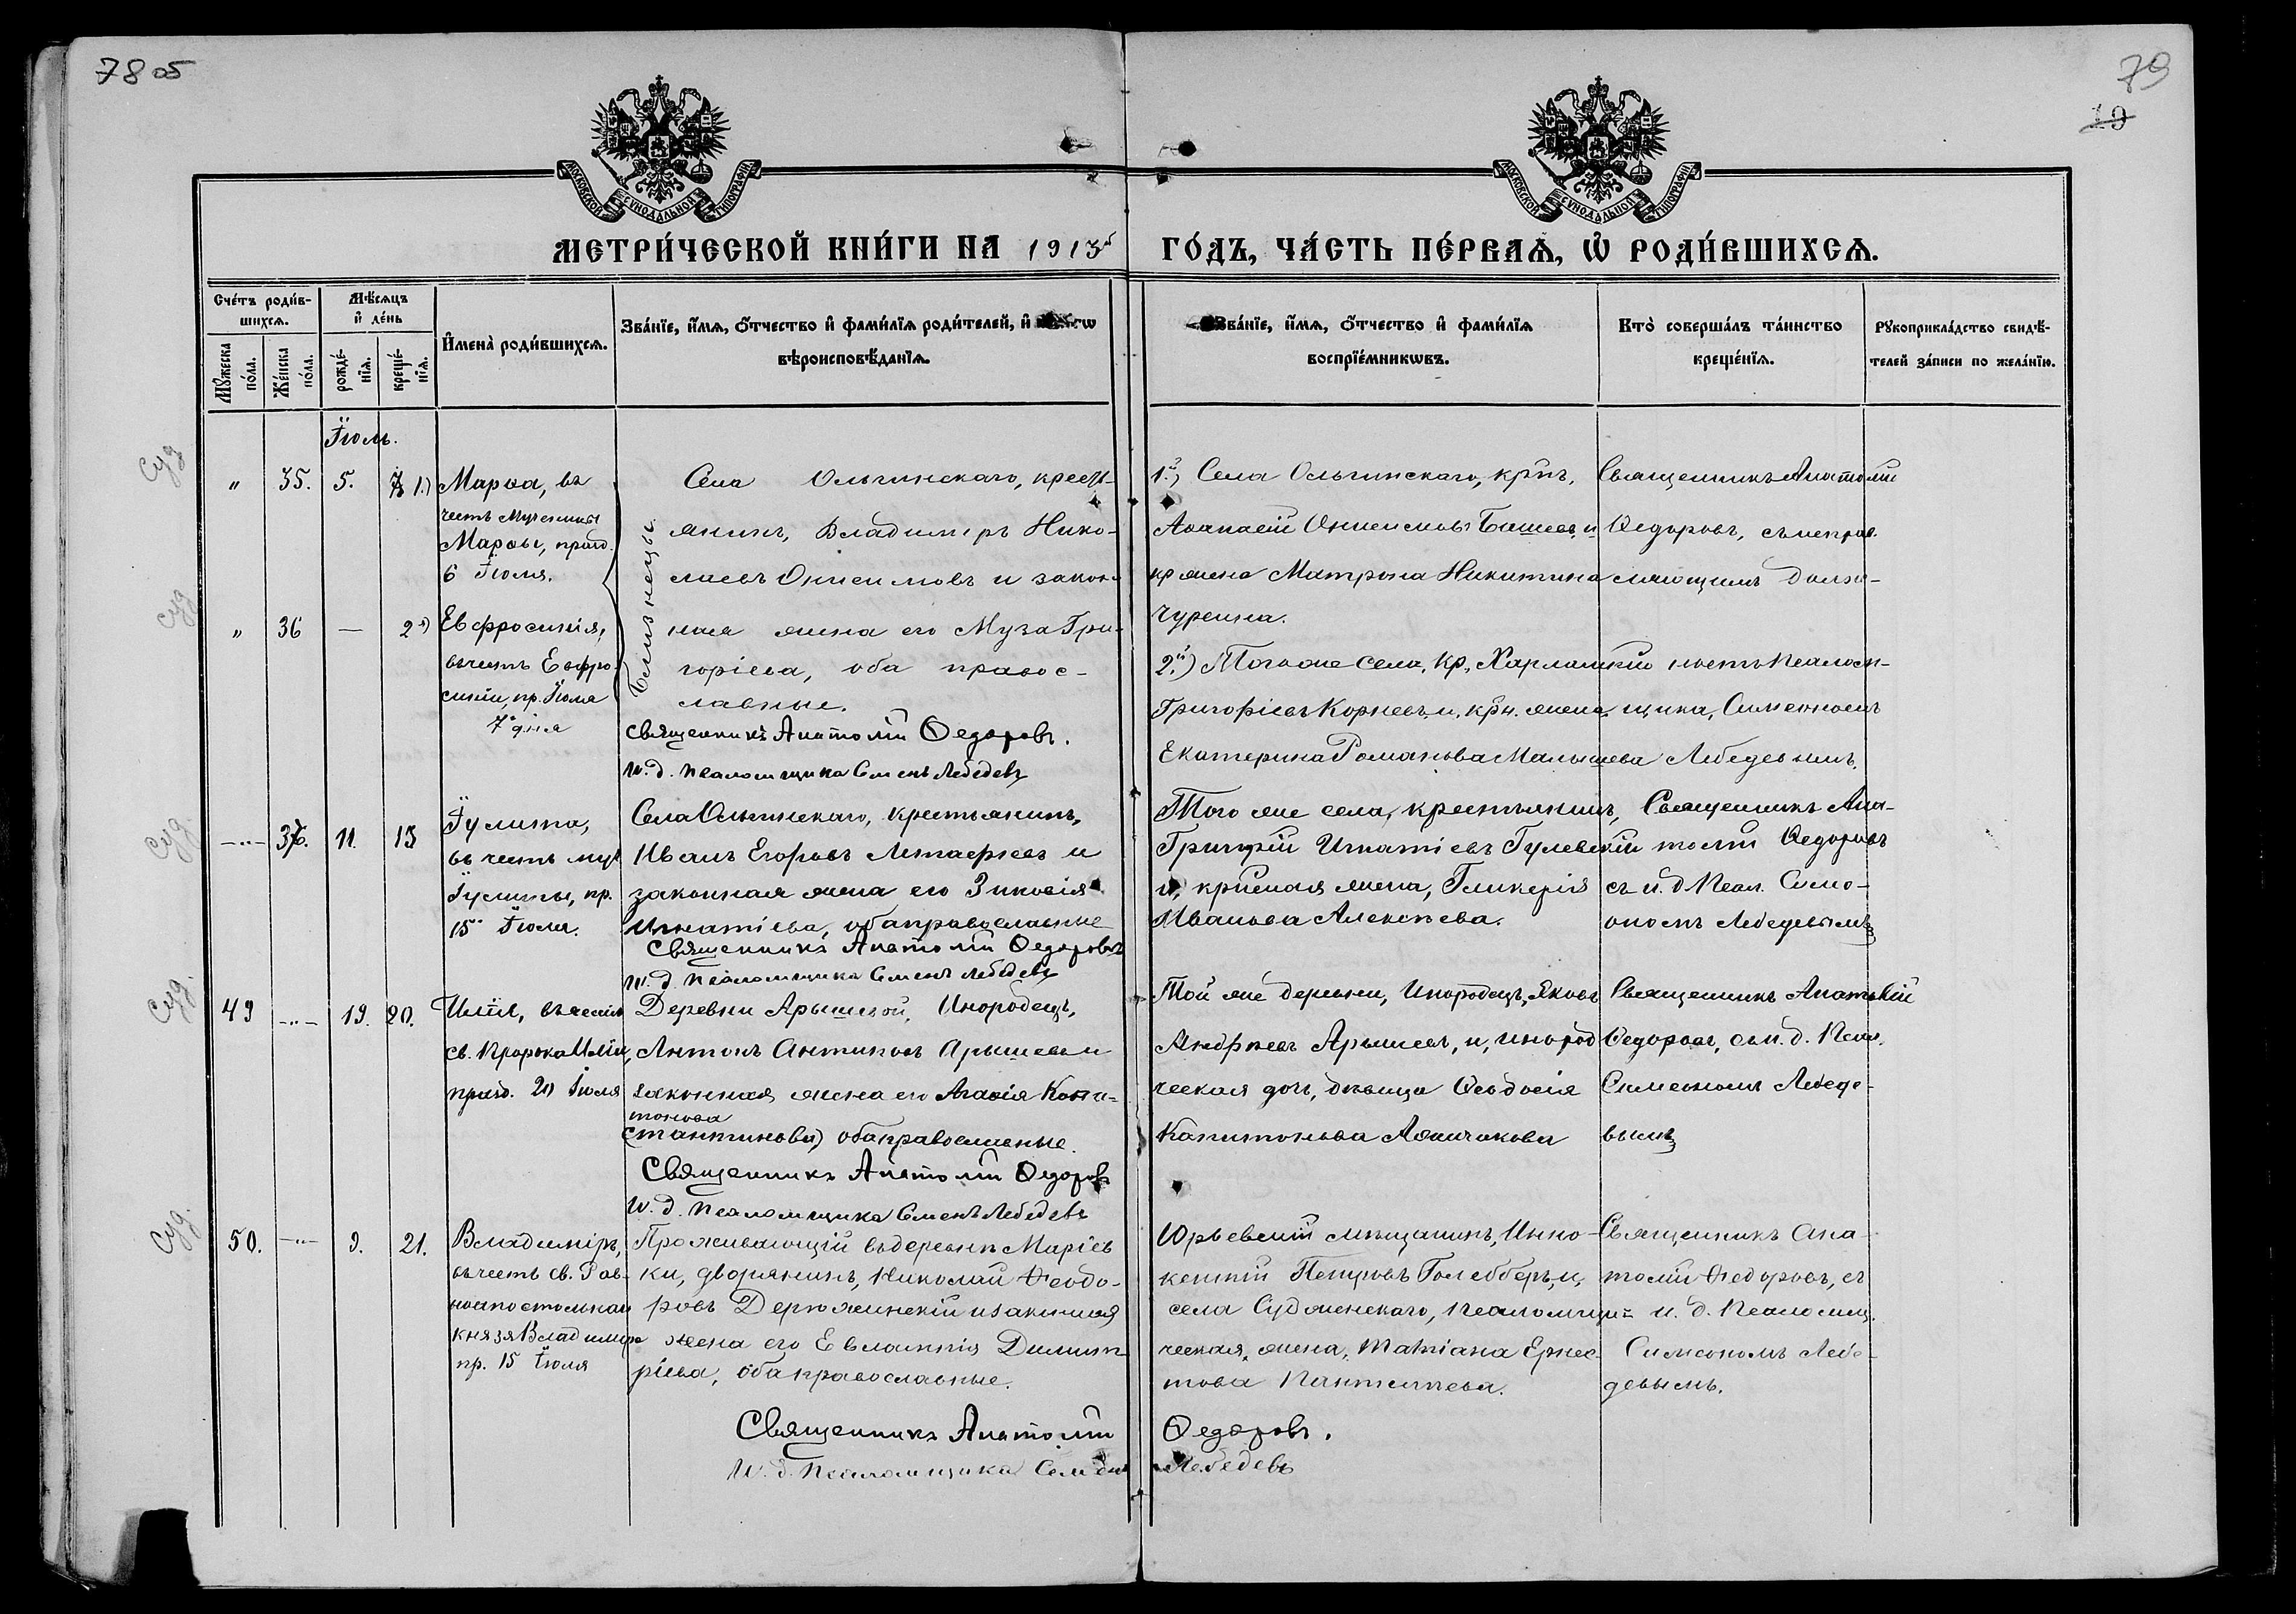 78 об
79
19
МОСКОВСКОЙ СѴНОДАЛЬНОЙ ТИПОГРАФІИ
МОСКОВСКОЙ СѴНОДАЛЬНОЙ ТИПОГРАФІИ
МЕТРИ́ЧЕСКОЙ КНИ́ГИ НА 1913 ГО́ДЪ, ЧА́СТЬ ПЕ́РВАѦ, Ѡ҆ РОДИ́ВШИХСѦ.
Сче́тъ роди́в-
шихсѧ.
Мꙋжеска по́ла.
Же́нска по́ла.
Мѣ́сѧцъ и҆ де́нь
рожде́-нїѧ.
креще́-нїѧ.
И҆мена̀ роди́вшихсѧ.
Зва́нїе, и҆́мѧ, ѻ҆́тчество и҆ фами́лїѧ роди́телей, и҆
вѣроисповѣ́данїѧ.
Зва́нїе, и҆́мѧ, ѻ҆́тчество и҆ фами́лїѧ
воспрїе́мникѡвъ.
Кто̀ соверша́лъ та́инство
креще́нїѧ.
Рꙋкоприкла́дство свидѣ́-
телей за́писи по жела́нїю.
Іюль.
суд
" 35. 5. 7 1.)
Марѳа, въ
честь Мученицы
Марѳы, празд.
6 Іюля.
суд
" 36 — 2)
Евфросинія,
въ честь Евфро-
синіи, пр. Іюля
7 дня
Близнецы.
Села Ольгинскаго, кресть-
янинъ, Владимиръ Нико-
лаевъ Онисимовъ и закон-
ная жена его Муза Гри-
горіева, оба правос-
лавные.
Священникъ Анатолій Ѳедоровъ.
И. д. псаломщика Семенъ Лебедевъ
1.) Села Ольгинскаго, крнъ,
Аѳанасій Онисимовъ Башев, и
кр жена Матрона Никитина
Чурсина.
2.) Того же села, кр. Харлампій
Григоріевъ Корнеевъ, и, крн. жена
Екатерина Романова Малышева
Священникъ Анатолій
Ѳедоровъ, съ исправ-
ляющимъ долж-
ность псалом-
щика, Симеономъ
Лебедевымъ.
суд.
—"— 37. 11. 15
Іулита,
въ честь муч
Іулиты, пр.
15 Іюля.
Села Ольгинскаго, крестьянинъ,
Иванъ Егоровъ Астафьевъ и
законная жена его Зиновія
Игнатіева, оба православные
Священникъ Анатолій Ѳедоровъ
И. д. псаломщика Семенъ Лебедевъ
Того же села, крестьянинъ,
Григорій Игнатіевъ Гулевскій
и, крнская жена, Гликерія
Иванова Алексѣева.
Священникъ Ана-
толій Ѳедоровъ
съ и. д. Псал. Симе-
ономъ Лебедевымъ
суд.
49 —"— 19. 20.
Илія, въ честь
св. Пророка Иліи,
празд. 20 Іюля
Деревни Арышевой, Инородецъ,
Антонъ Антиповъ Арышевъ и
законная жена его Агаѳія Капи-
тонова
(стантинова) оба православные.
Священникъ Анатолій Ѳедоровъ
И. д. псаломщика Семенъ Лебедевъ
Той же деревни, Инородецъ, Яковъ
Андреевъ Арышевъ, и, инород
ческая дочь, дѣвица Ѳеодосія
Капитонова
Священникъ Анатолій
Ѳедоровъ, съ и. д. Псал.
Симеономъ Лебеде-
вымъ
суд.
50. —"— 9. 21.
Владиміръ,
въ честь св. Рав-
ноапостольнаго
князя Владиміра
пр. 15 Іюля
Проживающій въ деревнѣ Маріев
ки, дворянинъ, Николай Ѳеодо-
ровъ Держинскій и законная
жена его Евлампія Димит-
ріева, оба православные.
Юрьевскій мѣщанинъ, Инно-
кентій Петровъ Гольбергъ, и,
села Судженскаго, псаломщи-
ческая, жена, Татіана Ернес-
това Пантелѣева.
Священникъ Ана-
толій Ѳедоровъ, съ
и. д. Псаломщ.
Симеономъ Лебе-
девымъ.
Священникъ Анатолій Ѳедоровъ.
И. д. псаломщика Семенъ Лебедевъ